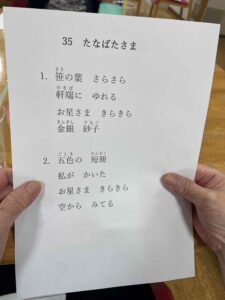 35 たなばたさま
1. 笹の葉 さらさら
軒端に ゆれる
お星さま きらきら
金銀 砂子
2. 五色の 短冊
私が かいた
お星さま きらきら
空から みてる